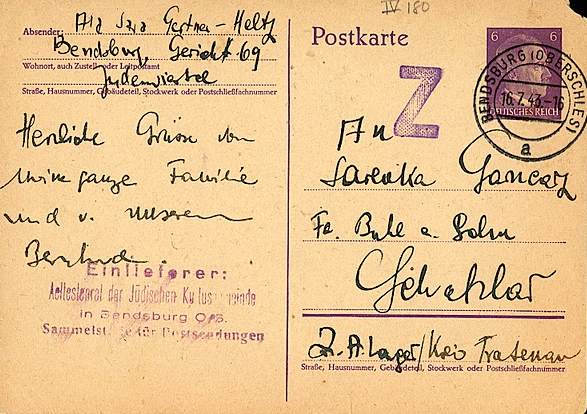 IV 180
Absender:
Bendsburg, Gericht 69
Wohnort, auch Zustell- oder Leitpostamt
Judenviertel
Straße, Hausnummer, Gebäudeteil, Stockwerk oder Postschließfachnummer
Herzliche Grüsse von
meine ganze Familie
und v. unseren
Einlieferer:
Aeltestenrat der Jüdischen Kultusgemeinde
in Bendsburg O/S.
Sammelstelle für Postsendungen
Postkarte
6 6
DEUTSCHES REICH
BENDSBURG (OBERSCHLES)
16.7.43.-16
a
Z
An
Sarenka Goncarz
Fa.
Schatzlar
Z. A. Lager/ Trautenau
Straße, Hausnummer, Gebäudeteil, Stockwerk oder Postschließfachnummer